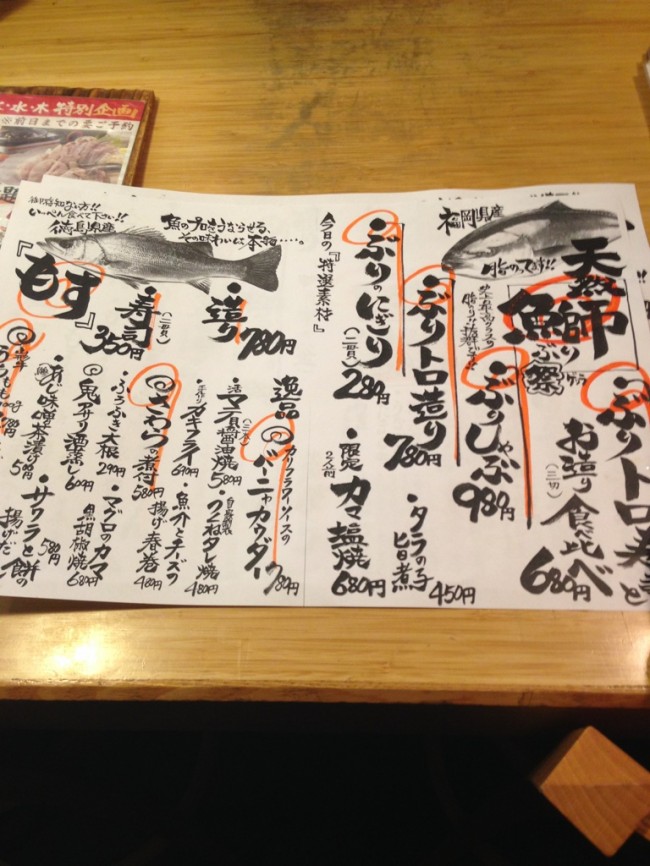 水・木 特別企画
※前日までの要ご予約
福岡県産
脂のってます!!
天然鰤
ぶり祭
・ぶりトロ寿
お造り食べ比べ
(二切)
680円
・ぶりしゃぶ
980円
・ぶりトロ造り
780円
・タラの子旨煮
450円
今日の『特選素材』
・ぶりのにぎり
(二貫)
280円
・限定カマ塩焼
680円
御存知ない方!!
いっぺん食べて下さい!!
徳島県産
魚のプロをうならせる、
その味わいは本物…。
『もす』
・造り
780円
・寿司
(二貫)
350円
逸品
カリフラワーソースの
バーニャカウダー
780円
・活マテ貝醤油焼
580円
・自家製つくねタレ焼
480円
・手作りカキフライ
690円
・魚介とチーズの揚げ春巻
480円
さわらの煮付
580円
・ふろふき大根
290円
・マグロのカマ黒胡椒焼
680円
・鬼アサリ酒蒸し
600円
味噌茶漬け
500円
・サワラと餅の揚げだし
580円